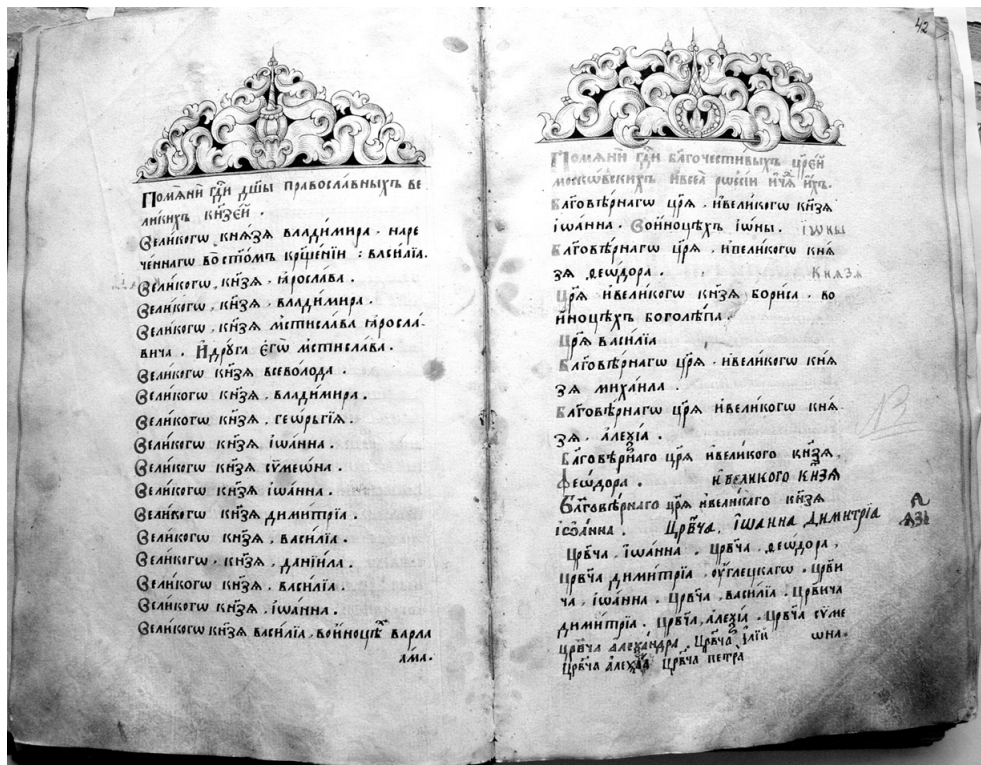 Помѧни́ гдⷭ҇и дш҃ы правосла́вныхъ ве
ли́кихъ кн҃зе́й .
Вели́когѡ кнѧ́зѧ влади́мира . наре
че́ннагѡ во ст҃о́мъ кр҃ще́нїи : васи́лїа.
Вели́когѡ , кн҃зѧ . ꙗросла́ва .
Вели́когѡ , кн҃зѧ . влади́мира .
Вели́когѡ , кн҃зѧ мстисла́ва ꙗросла́-
вича . И҆дрꙋ́га є҆гѡ̀ мстисла́ва .
Вели́когѡ кн҃зѧ всево́лода .
Вели́когѡ кн҃зѧ . влади́мира .
Вели́когѡ кн҃зѧ , геѡ́ргїѧ .
Вели́когѡ кн҃зѧ і҆ѡа́нна .
Вели́когѡ кн҃зѧ сѷмеѡ́на .
Вели́когѡ кн҃зѧ і҆ѡа́нна .
Вели́когѡ кн҃зѧ дими́трїа .
Вели́когѡ кн҃зѧ . васи́лїа .
Вели́когѡ . кн҃зѧ . данїи́ла .
Вели́когѡ кн҃зѧ . васи́лїа .
Вели́когѡ кн҃зѧ , і҆ѡа́нна .
Вели́когѡ кн҃зѧ васи́лїа , во и҆ноцѣⷯ варла
а́ма .
42
Помѧни́ гдⷭ҇и бл҃гочести́выхъ цр҃е́й
моско́вскихъ и҆всеѧ̀ рѡссі́и и҆ча́дъ и҆́хъ.
Бл҃говѣ́рнагѡ цр҃ѧ̀ . и҆вели́когѡ кн҃зѧ
і҆ѡа́нна . Во и҆ноцѣхъ і҆ѡ́ны . іѡны
Бл҃говѣ́рнагѡ цр҃ѧ̀ . и҆вели́когѡ кнѧ́
зѧ ѳеѡ́дора . Кнѧзѧ
Цр҃ѧ̀ и҆вели́когѡ кн҃зѧ бори́са . во
и҆ноцѣхъ боголѣ́па .
Цр҃ѧ васи́лїа
Бл҃говѣ́рнагѡ цр҃ѧ̀ . и҆вели́когѡ кнѧ́
зѧ михаи́ла .
Бл҃говѣ́рнагѡ цр҃ѧ̀ и҆вели́когѡ кнѧ́
зѧ . а҆леѯі́а .
Бл҃говѣ́рнаго цр҃ѧ̀ и҆вели́кого кн҃зѧ .
ѳеѡ́дора . и҆вели́кого кн҃зѧ
Бл҃говѣ́рнаго цр҃ѧ̀ и҆вели́каго кн҃зѧ
і҆ѡа́нна . Цр҃ви́ча . і҆ѡа́нна Дими́трїа
Цр҃ви́ча , і҆ѡа́нна . Цр҃ви́ча . ѳеѡ́дора ,
Цр҃ви́ча дими́трїа . оу҆́глецкагѡ . цр҃ви
ча , і҆ѡа́нна . Цр҃ви́ча , васи́лїа . Цр҃ви́ча
дими́трїа . Цр҃ви́ча , а҆леѯі́а . Цр҃ви́ча сѷме
ѡна .
Цр҃ви́ча а҆леѯа́ндра . Цр҃ви́ча и҆лїи́
Цр҃ви́ча а҆леѯі́а Цр҃ви́ча петра̀
13